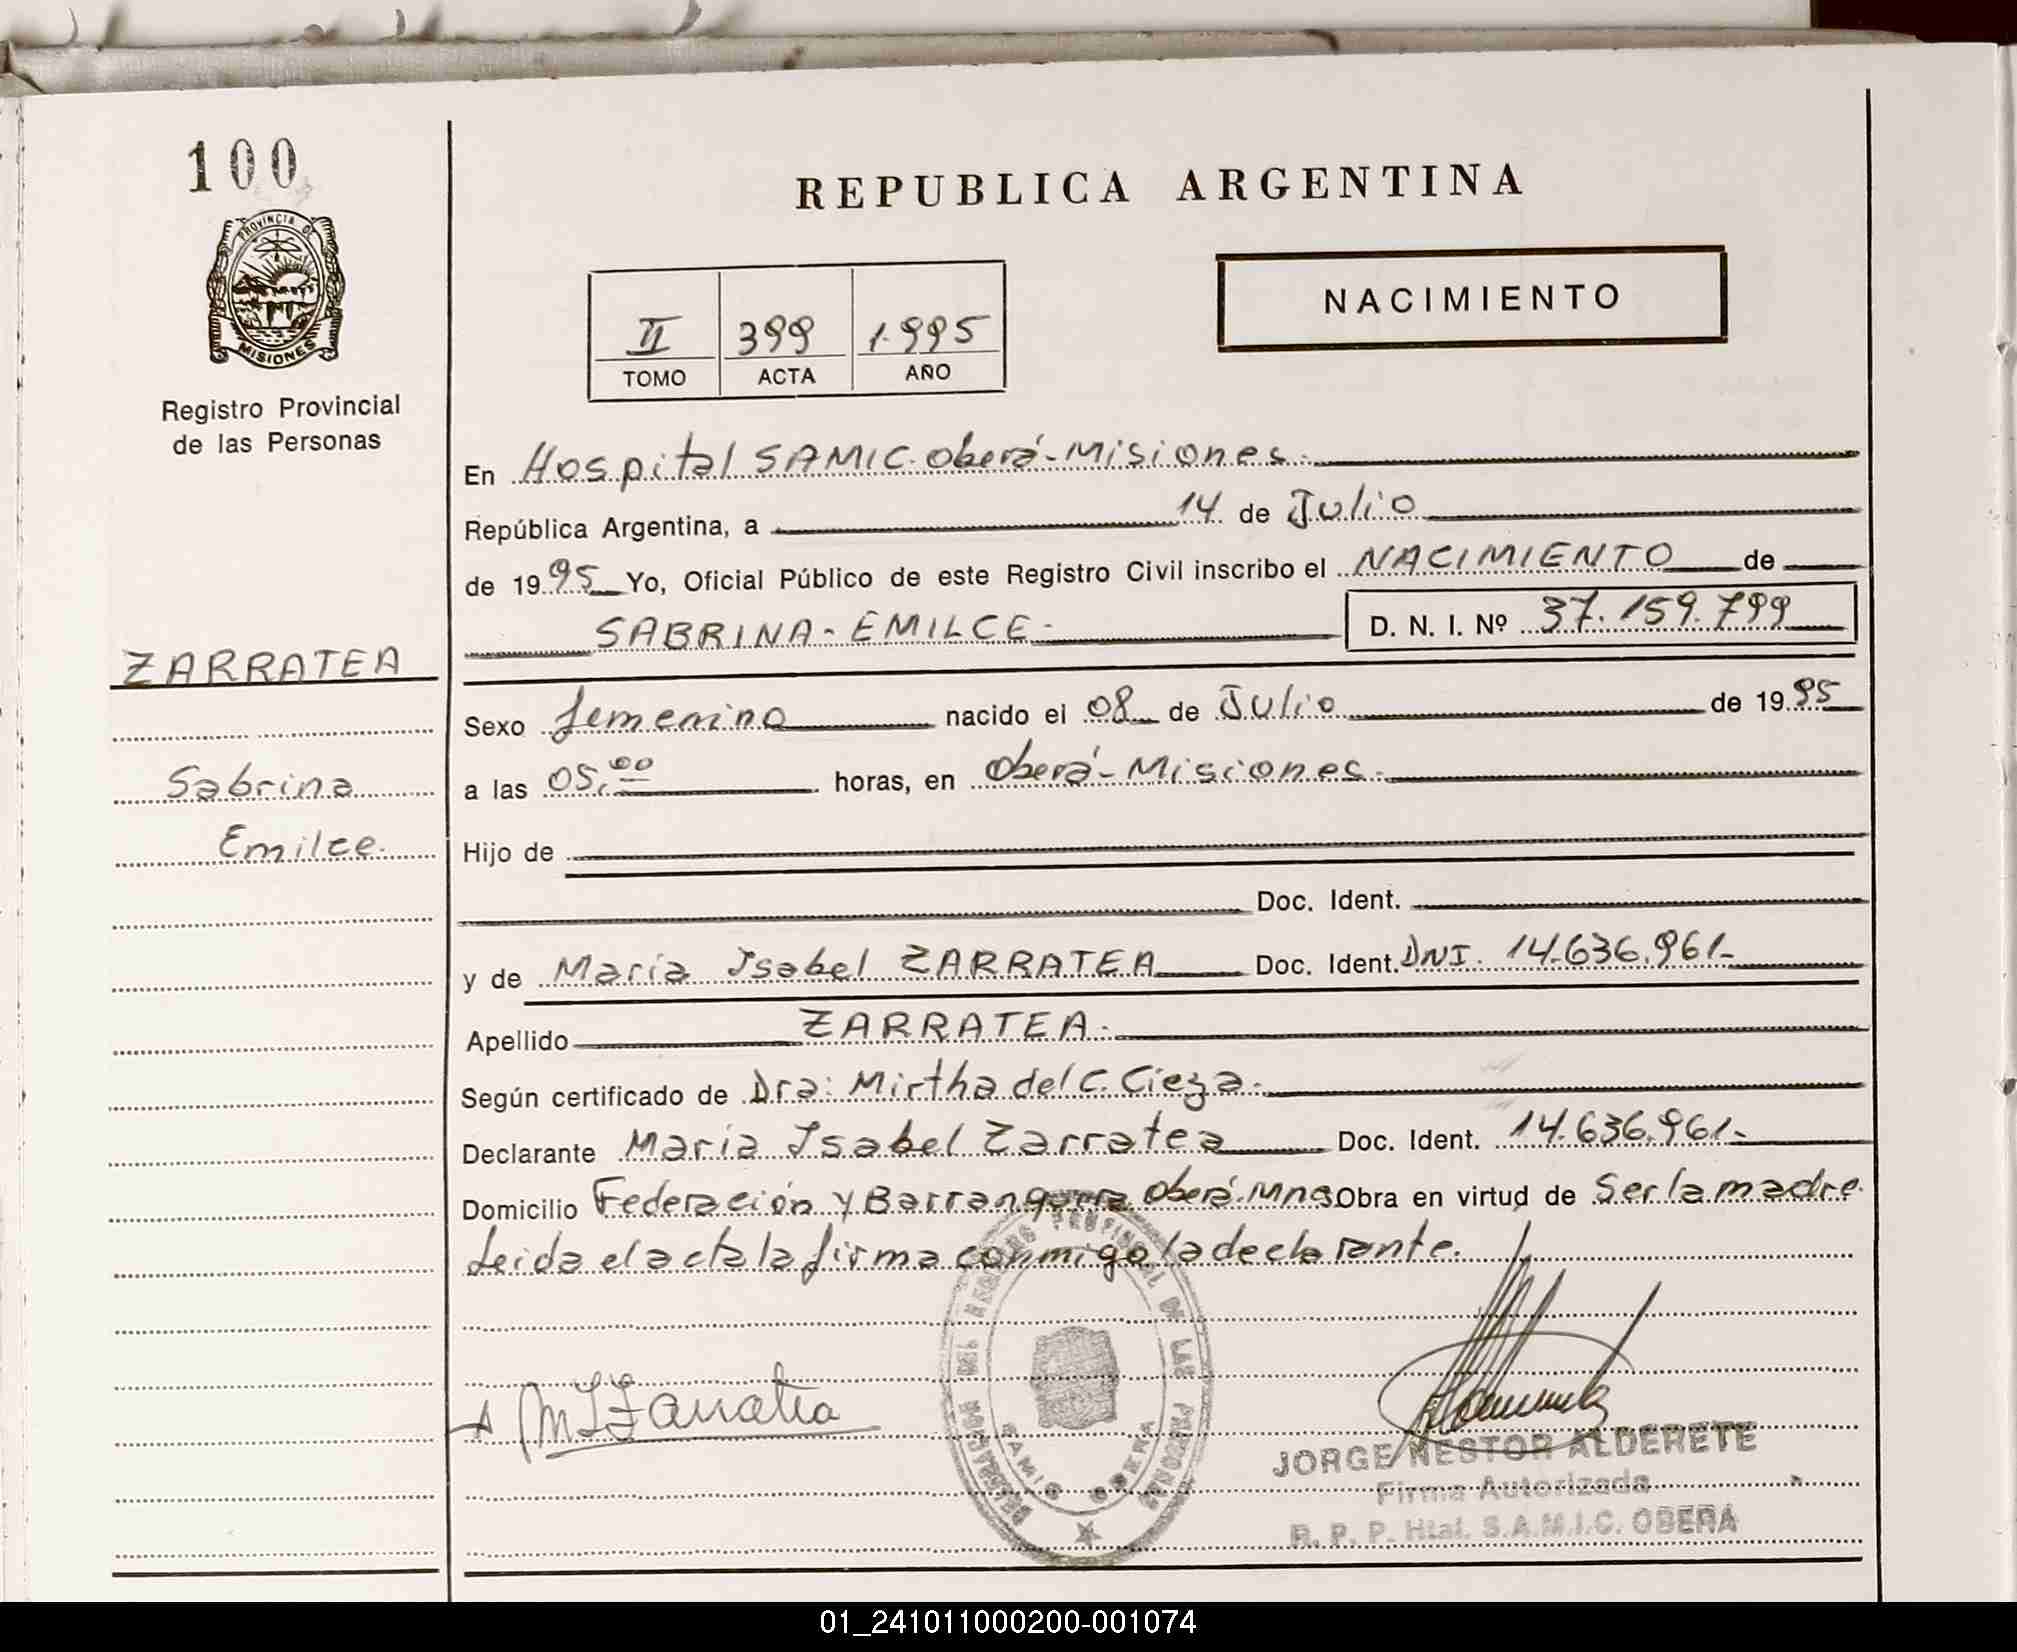 100
REPUBLICA ARGENTINA
PROVINCIA DE
MISIONES
NACIMIENTO
II 399 1.995
TOMO ACTA AÑO
Registro Provincial
de las Personas
En Hospital SAMIC. Oberá - Misiones.
República Argentina, a 14 de Julio
de 1995 Yo, Oficial Público de este Registro Civil inscribo el NACIMIENTO de
SABRINA - EMILCE - D. N. I. Nº 37.159.799
ZARRATEA
Sexo femenino nacido el 08 de Julio de 1995
Sabrina
a las 05,00 horas, en Oberá - Misiones.
Emilce.
Hijo de
Doc. Ident.
y de Maria Isabel ZARRATEA Doc. Ident. DNI. 14.636.961-
Apellido ZARRATEA.
Según certificado de Dra: Mirtha del C. Cieza.
Declarante Maria Isabel Zarratea Doc. Ident. 14.636.961-
Domicilio Federación y Barranquera Oberá. Mns Obra en virtud de Ser la madre
Leida el acta la firma conmigo la declarante.
REGISTRO PROVINCIAL DE LAS PERSONAS
DELEGACION
SAMIC OBERA
M I Zarratea
JORGE NESTOR ALDERETE
Firma Autorizada
R. P. P. Htal. S.A.M.I.C. OBERA
01_241011000200-001074